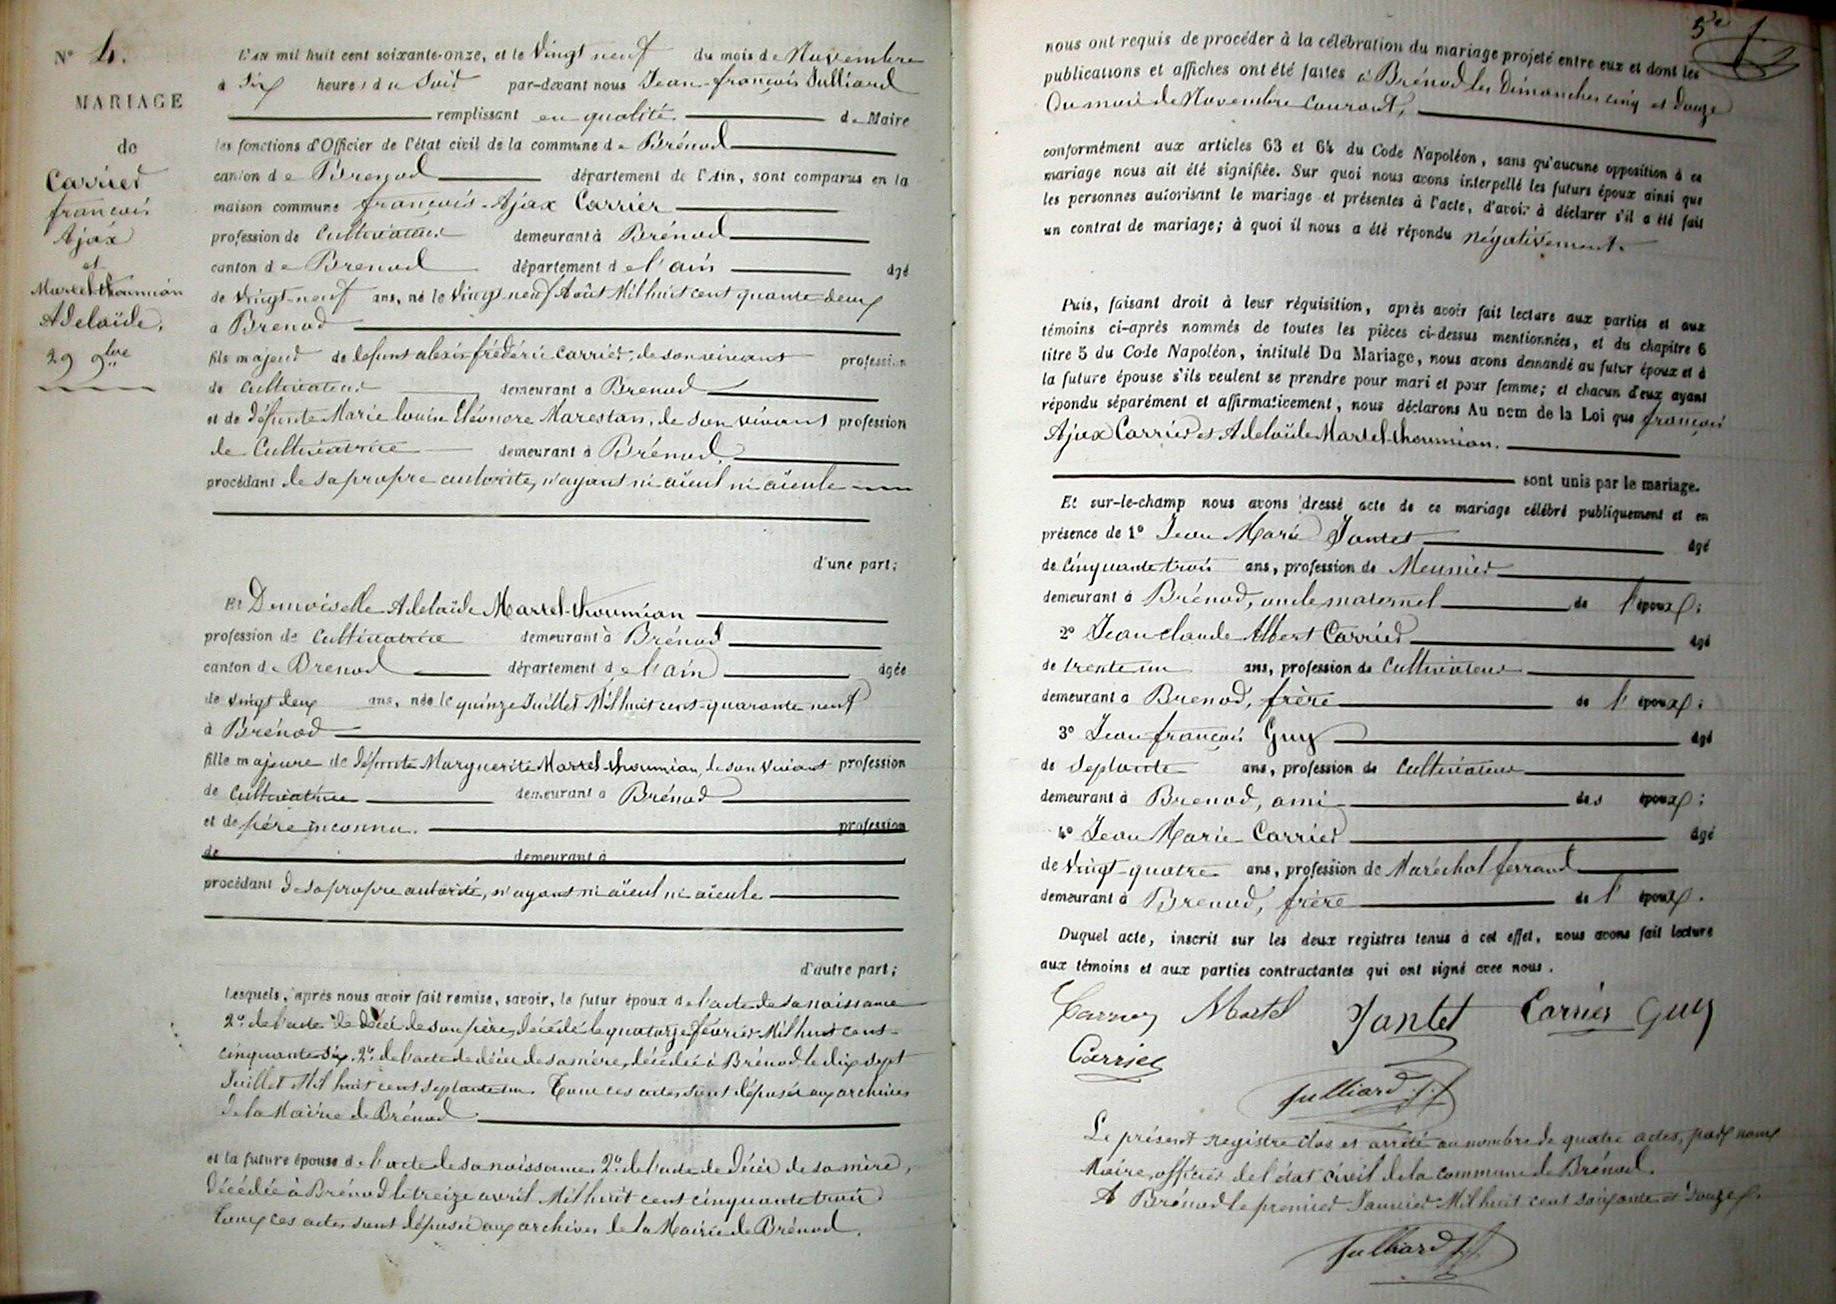 N° 4.
MARIAGE
de
Carrier
françois
Ajax
et
Martel-thoumian
Adelaïde.
29 9bre
L'an mil huit cent soixante-onze, et le Vingt neuf du mois de Novembre
à Six heures du Soir par-devant nous Jean-françois Julliard
remplissant en qualité de Maire
les fonctions d'Officier de l'état civil de la commune de Brénod
canton de Brenod département de l'Ain, sont comparus en la
maison commune françois-Ajax Carrier
profession de Cultivateur demeurant à Brénod
canton de Brenod département de l'ain âgé
de Vingt-neuf ans, né le Vingt neuf Août Mil huit cent quarante deux
à Brenod
fils majeur de defunt alexis frédéric Carrier, de son vivant profession
de Cultivateur demeurant à Brenod
et de défunte Marie louise Eléonore Marestan, de son vivant profession
de Cultivatrice demeurant à Brénod
procédant de sa propre autorité, n'ayant ni aïeul ni aïeule
d'une part;
Et Demoiselle Adelaïde Martel-thoumian
profession de Cultivatrice demeurant à Brénod
canton de Brenod département de l'ain âgée
de vingt deux ans, née le quinze Juillet Mil huit cent-quarante neuf
à Brénod
fille majeure de défunte Marguerite Martel-thoumian, de son vivant profession
de Cultivatrice demeurant à Brénod
et de père inconnu. profession
de demeurant à
procédant de sa propre autorité, n'ayant ni aïeul ni aïeule
d'autre part;
Lesquels, après nous avoir fait remise, savoir, le futur époux de l'acte de sa naissance
2° de l'acte de décès de son père, décédé le quatorze février Mil huit cent-
cinquante six, 2° de l'acte de décès de sa mère, décédée à Brénod le dix sept
Juillet Mil huit cent septante un. Tous ces actes sont déposés aux archives
de la Mairie de Brénod
et la future épouse de l'acte de sa naissance, 2° de l'acte de décès de sa mère,
décédée à Brénod le treize avril Mil huit cent cinquante trois
tous ces actes sont déposés aux archives de la Mairie de Brénod.
5e
nous ont requis de procéder à la célébration du mariage projeté entre eux et dont les
publications et affiches ont été faites à Brénod les Dimanches cinq et douze
Du mois de Novembre courant,
conformément aux articles 63 et 64 du Code Napoléon, sans qu'aucune opposition à ce
mariage nous ait été signifiée. Sur quoi nous avons interpellé les futurs époux ainsi que
les personnes autorisant le mariage et présentes à l'acte, d'avoir à déclarer s'il a été fait
un contrat de mariage; à quoi il nous a été répondu négativement.
Puis, faisant droit à leur réquisition, après avoir fait lecture aux parties et aux
témoins ci-après nommés de toutes les pièces ci-dessus mentionnées, et du chapitre 6
titre 5 du Code Napoléon, intitulé Du Mariage, nous avons demandé au futur époux et à
la future épouse s'ils veulent se prendre pour mari et pour femme; et chacun d'eux ayant
répondu séparément et affirmativement, nous déclarons Au nom de la Loi que françois
Ajax Carrier et Adelaïde Martel-thoumian.
sont unis par le mariage.
Et sur-le-champ nous avons dressé acte de ce mariage célébré publiquement et en
présence de 1° Jean Marie Jantet âgé
de cinquante trois ans, profession de Meunier
demeurant à Brénod, oncle maternel de l'époux;
2° Jean claude Albert Carrier âgé
de trente un ans, profession de Cultivateur
demeurant à Brenod, frère de l'époux;
3° Jean françois Guy âgé
de septante ans, profession de Cultivateur
demeurant à Brenod, ami des époux;
4° Jean Marie Carrier âgé
de Vingt-quatre ans, profession de Maréchal ferrant
demeurant à Brenod, frère de l'époux.
Duquel acte, inscrit sur les deux registres tenus à cet effet, nous avons fait lecture
aux témoins et aux parties contractantes qui ont signé avec nous.
Carrier Martel Jantet Carrier Guy
Carrier
Julliard J.f
Le présent registre clos et arrêté au nombre de quatre actes, par nous
Maire, officier de l'état civil de la commune de Brénod.
A Brénod le premier Janvier Mil huit cent soixante et douze.
Julliard J.f